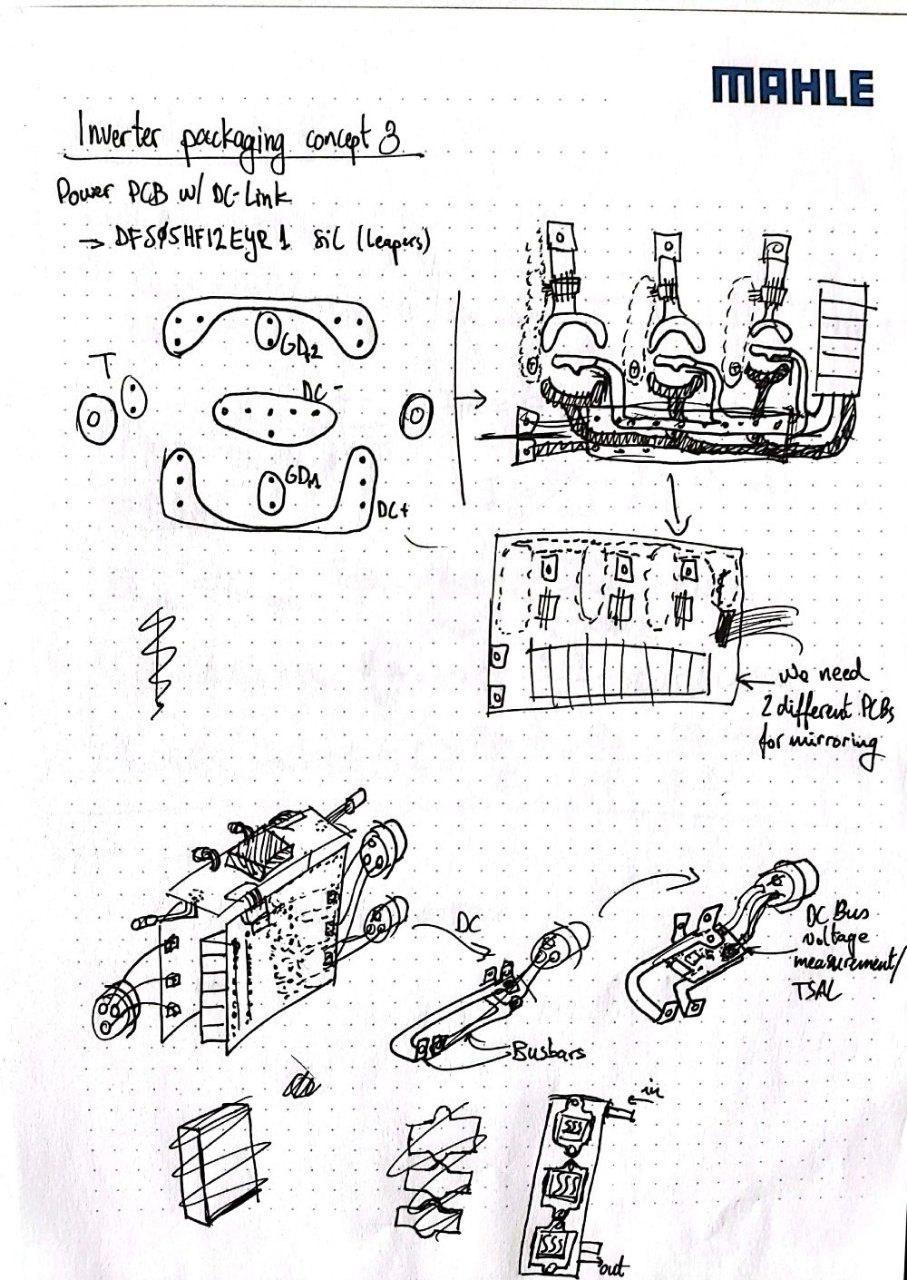 MAHLE
Inverter packaging concept 3
Power PCB w/ DC-Link
→ DFS05HF12EYR1 SiC (Leapers)
GD2
T
DC -
GD1
DC+
We need
2 different PCBs
for mirroring
DC
DC Bus
voltage
measurement/
TSAL
Busbars
in
out